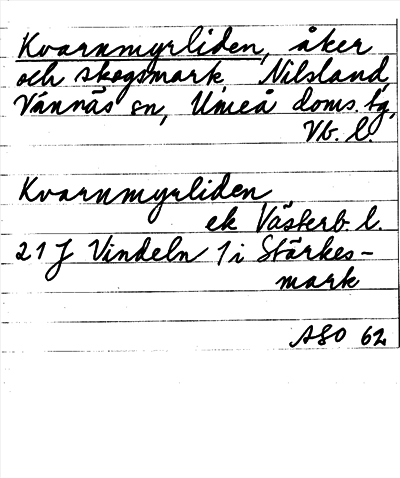 Kvarnmyrliden, åker
och skogsmark, Nilsland,
Vännäs sn, Umeå doms. bg,
Vb. l.
Kvarnmyrliden
ek Västerb. l.
21 J Vindeln 1 i Stärkes-
mark
ASO 62